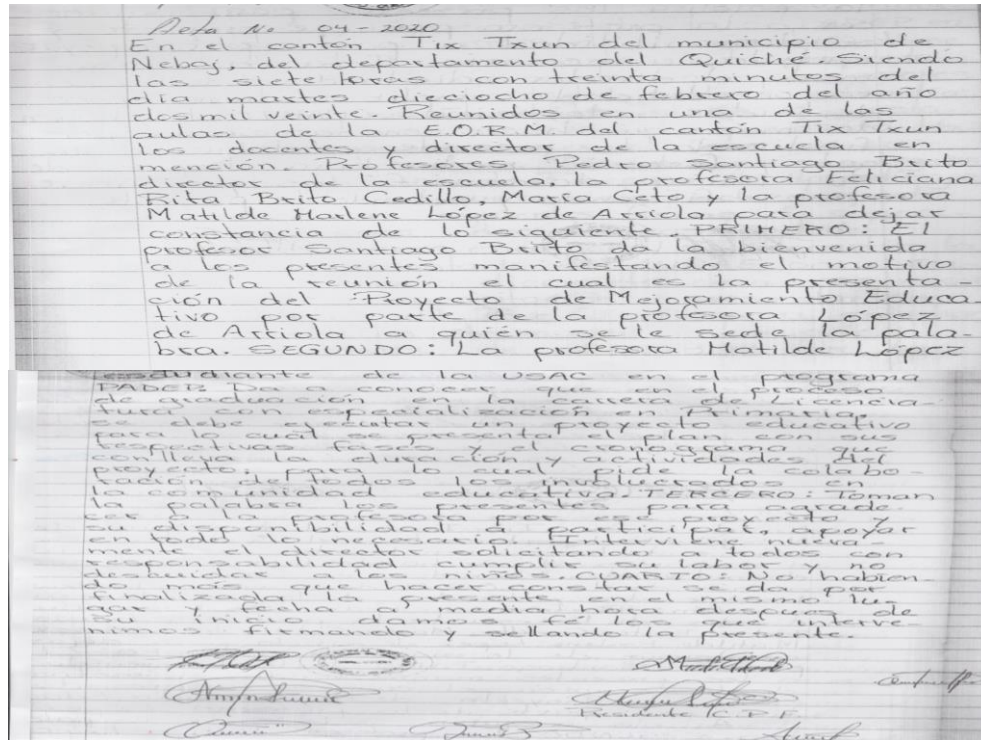 Acta No 04-2020
En el cantón Tix Txun del municipio de
Nebaj, del departamento del Quiché. Siendo
las siete horas con treinta minutos del
día martes dieciocho de febrero del año
dos mil veinte. Reunidos en una de las
aulas de la E.O.R.M. del cantón Tix Txun
los docentes y director de la escuela en
mención. Profesores Pedro Santiago Brito
director de la escuela, la profesora Feliciana
Rita Brito Cedillo, María Ceto y la profesora
Matilde Marlene López de Arriola para dejar
constancia de lo siguiente. PRIMERO: El
profesor Santiago Brito da la bienvenida
a los presentes manifestando el motivo
de la reunión el cual es la presenta-
ción del Proyecto de Mejoramiento Educa
tivo por parte de la profesora López
de Arriola a quién se le sede la pala-
bra. SEGUNDO: La profesora Matilde López
estudiante de la USAC en el programa
PADEP Da a conocer que en el proceso
de graduación en la carrera de Licencia-
tura con especialización en Primaria,
se debe ejecutar un proyecto educativo
para lo cual se presenta el plan con sus
respectivas fases y el cronograma que
conlleva la duración y actividades del
proyecto, para lo cual pide la colabo-
ración de todos los involucrados en
la comunidad educativa. TERCERO: Toman
la palabra los presentes para agrade-
cer a la profesora por ese proyecto y
su disponibilidad a participar, apoyar
en todo lo necesario. Interviene nueva-
mente el director solicitando a todos con
responsabilidad cumplir su labor y no
descuidar a los niños. CUARTO: No habien-
do más que hacer constar se da por
finalizada la presente en el mismo lu-
gar y fecha a media hora después de
su inicio damos fé los que interve-
nimos firmando y sellando la presente.
Presidente C.P.F